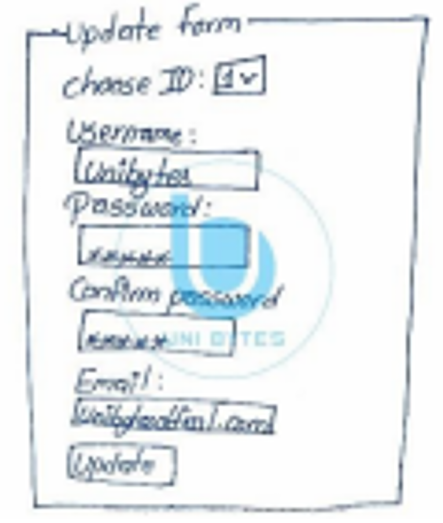 Update form
choose ID: 1
Username:
Unibytes
Password:
*****
Confirm password
*****
UNI BYTES
Email:
Update